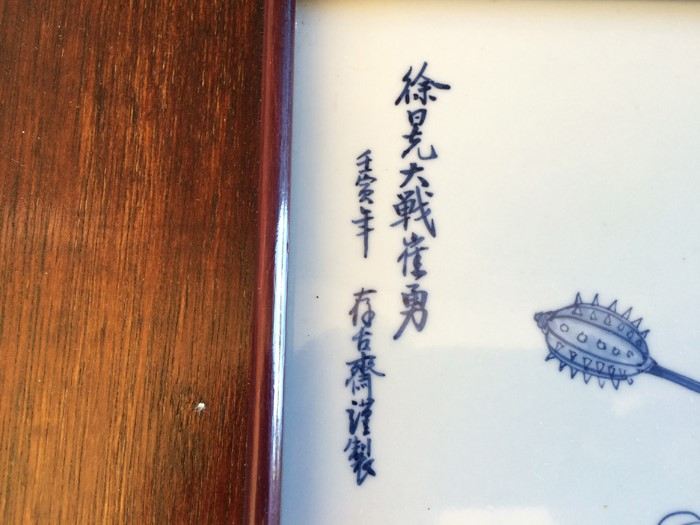 徐晃大戦崔勇
壬寅年 存古齋謹製